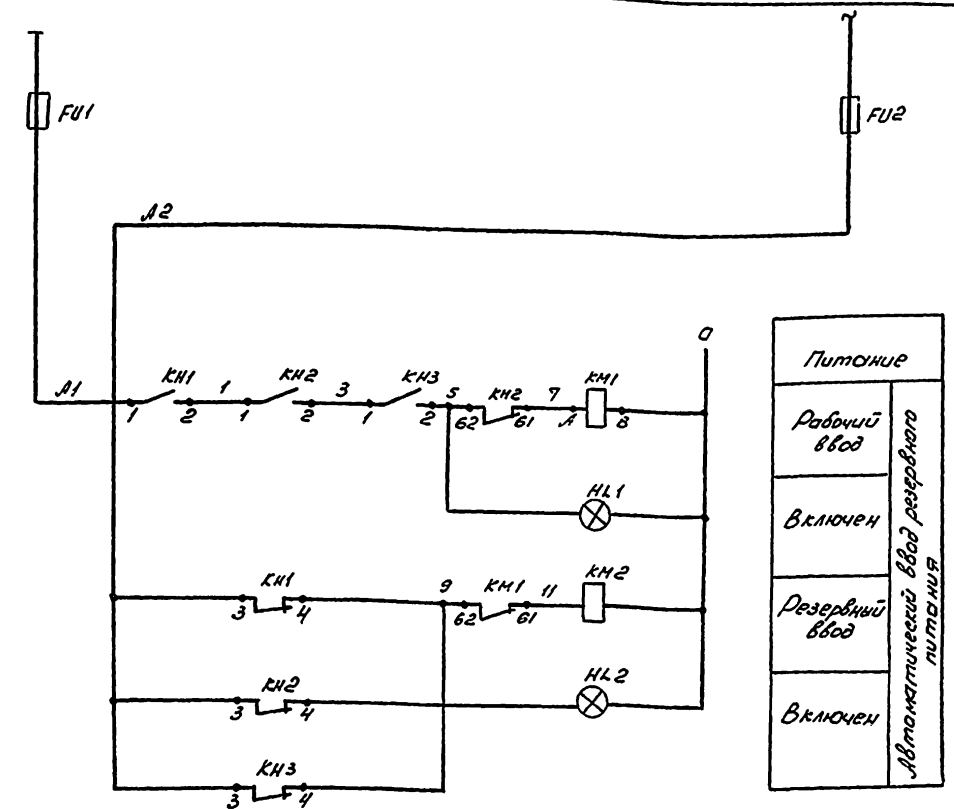 ~
FU1
FU2
A2
О
A1 КН1 1 КН2 3 КН3 5 КН2 7 КМ1
1 2 1 2 1 2 62 61 A B
HL1
КН1 9 КМ1 11 КМ2
3 4 62 61
КН2 HL2
3 4
КН3
3 4
Питание
Рабочий
ввод
Включен
Резервный
ввод
Включен
Автоматический ввод резервного
питания